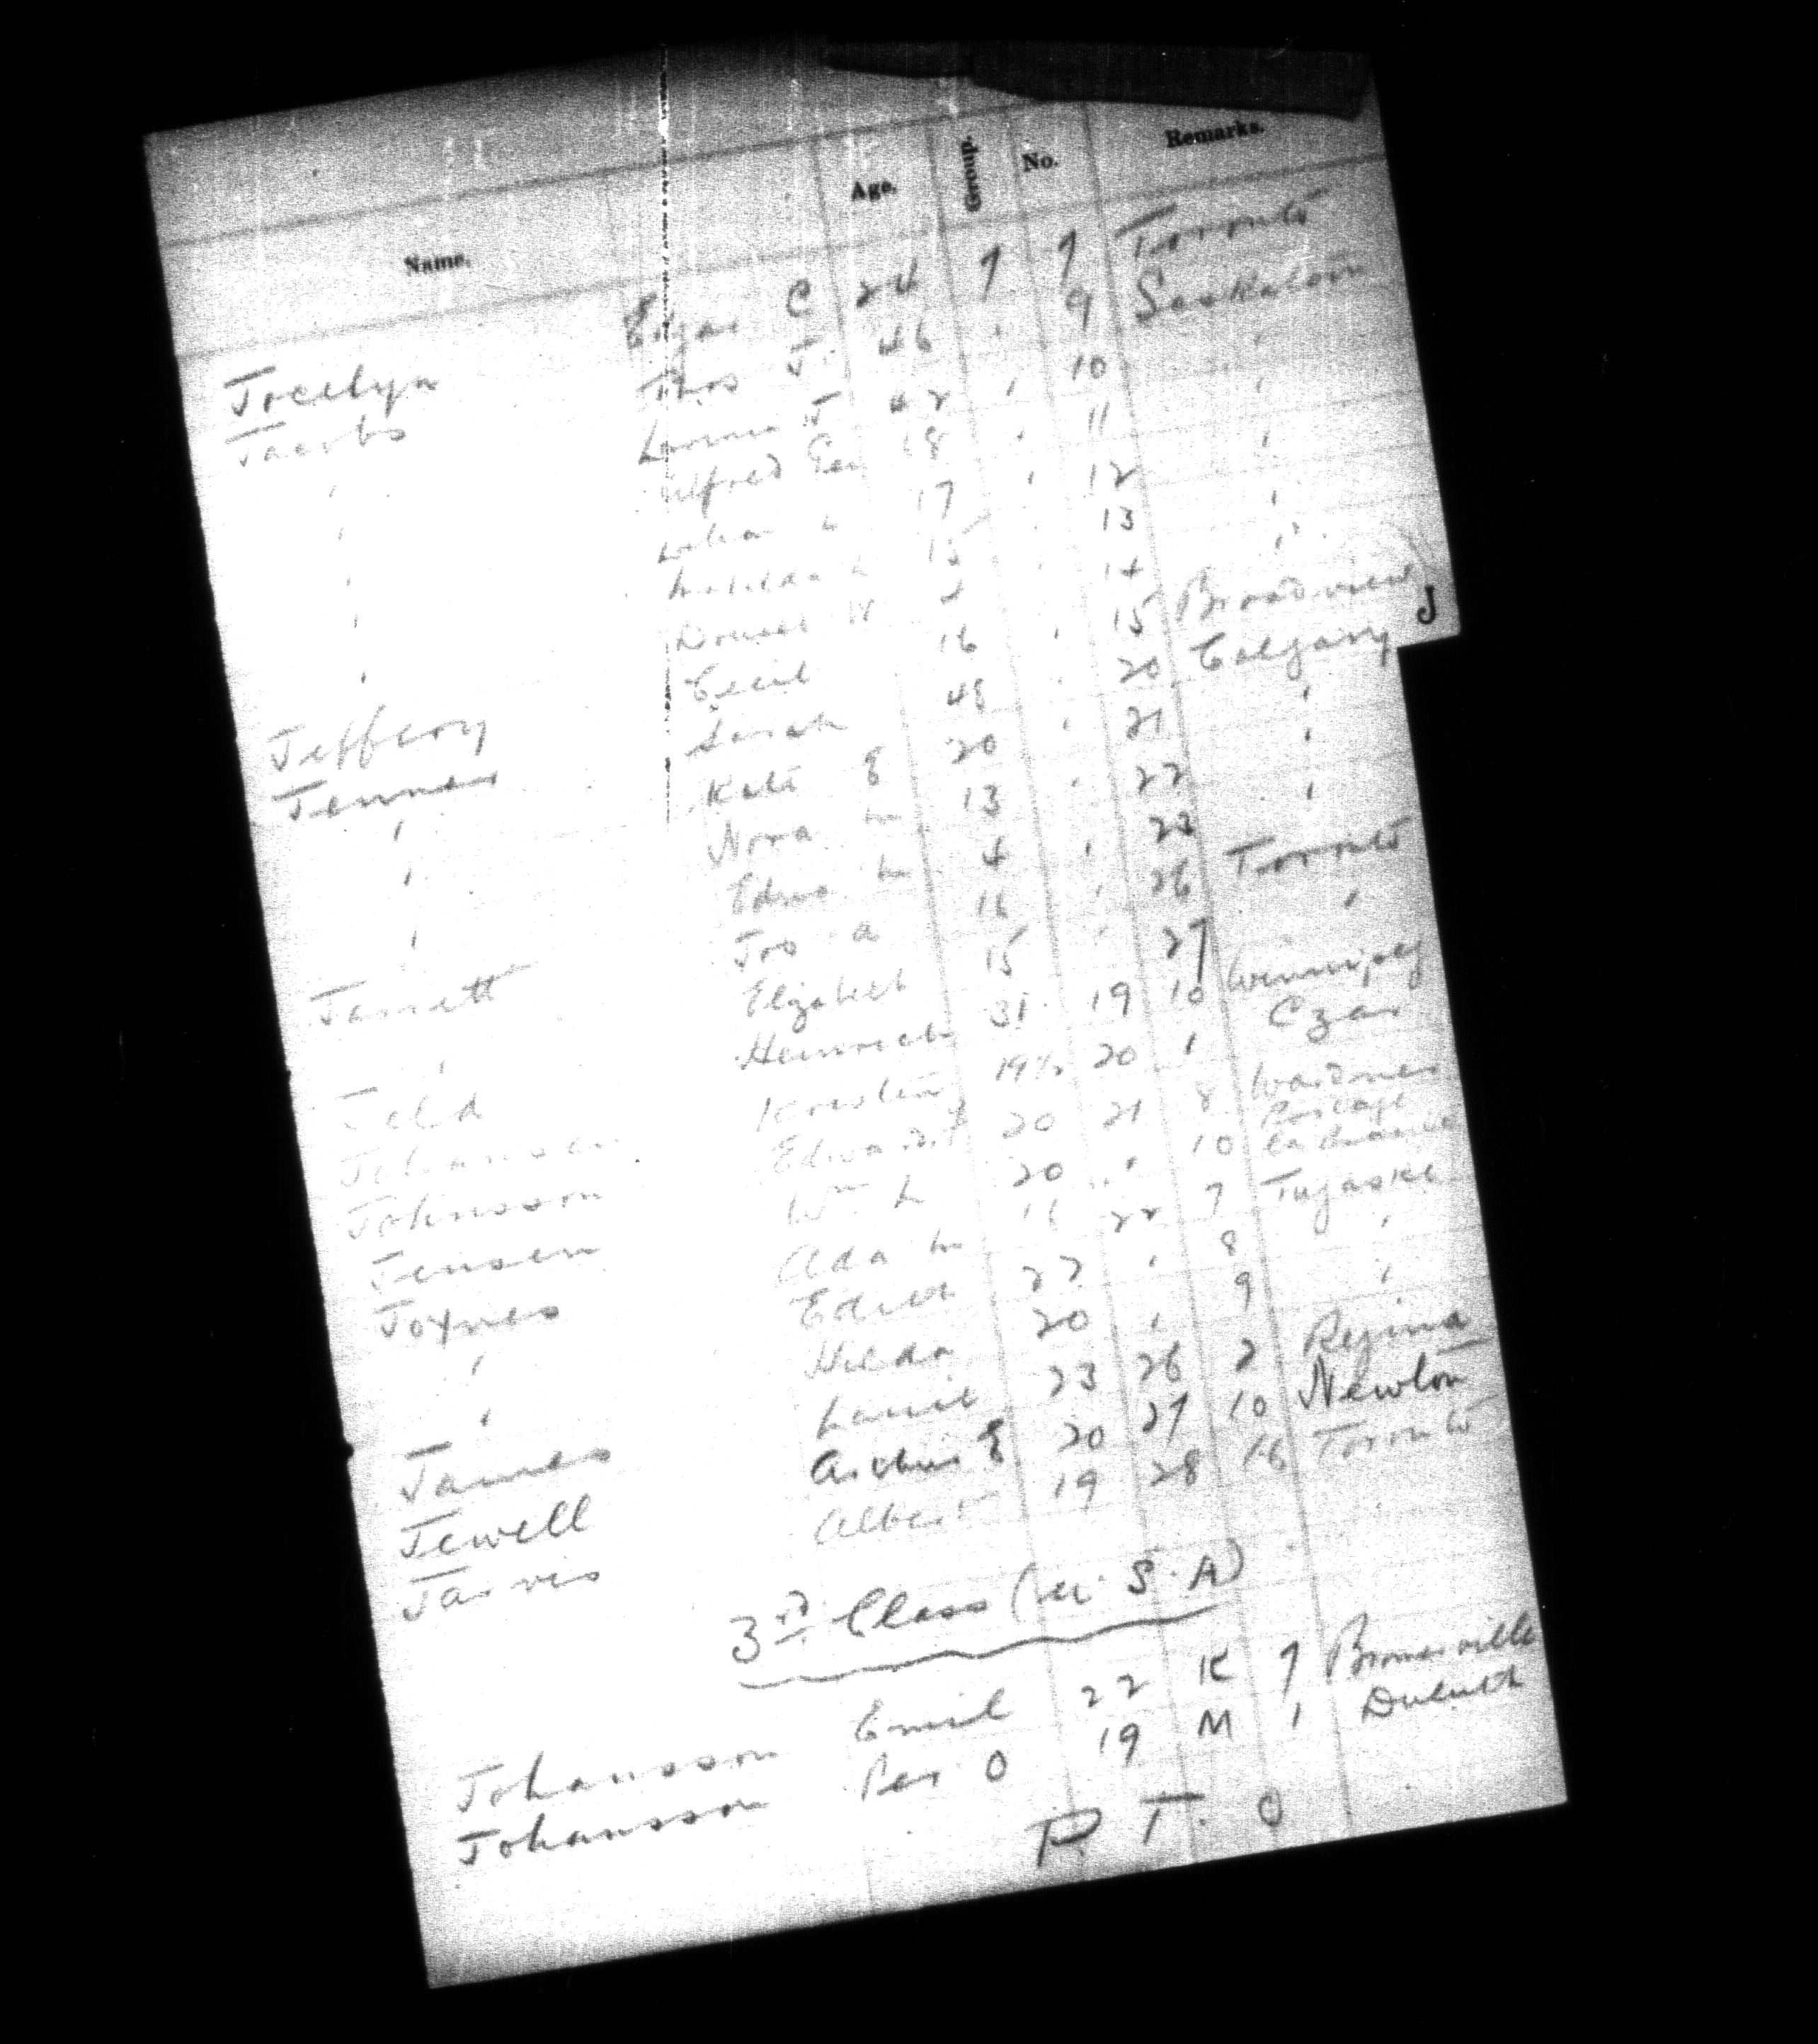 Name. Age. Group. No. Remarks.
Jocelyn Edgar C 24 7 7 Toronto
Jacobs Thos J. 46 " 9 Saskatoon
" J 42 " 10 "
" Alfred Geo 18 " 11 "
" 17 " 12 "
" 15 " 13 "
" 4 " 14 "
Jeffery Cecil 16 " 15 Broadview
Jenner Sarah 48 " 20 Calgary
" Kate E 20 " 21 "
" Nora M 13 " 22 "
" Edna M 4 " 23 "
Jarrett Jos A 16 " 26 Toronto
" Elizabeth 15 " 27 "
Heinrich 31 19 10 Winnipeg
Johansen 19½ 20 1 Czar
Johnsson Edward 20 21 8 Wardner
Jensen Wm L 20 " 10 Portage La Prairie
Joynes Ada M 16 22 7 Tugaske
" Edith 22 " 8 "
" Hilda 20 " 9 "
James 23 26 2 Regina
Jewell Arthur E 20 27 10 Newton
Jarvis Albert 19 28 16 Toronto
3rd Class (ex. S. A)
Johansson Emil 22 K 7
Johansson Per O 19 M 1 Duluth
P. T. O
J